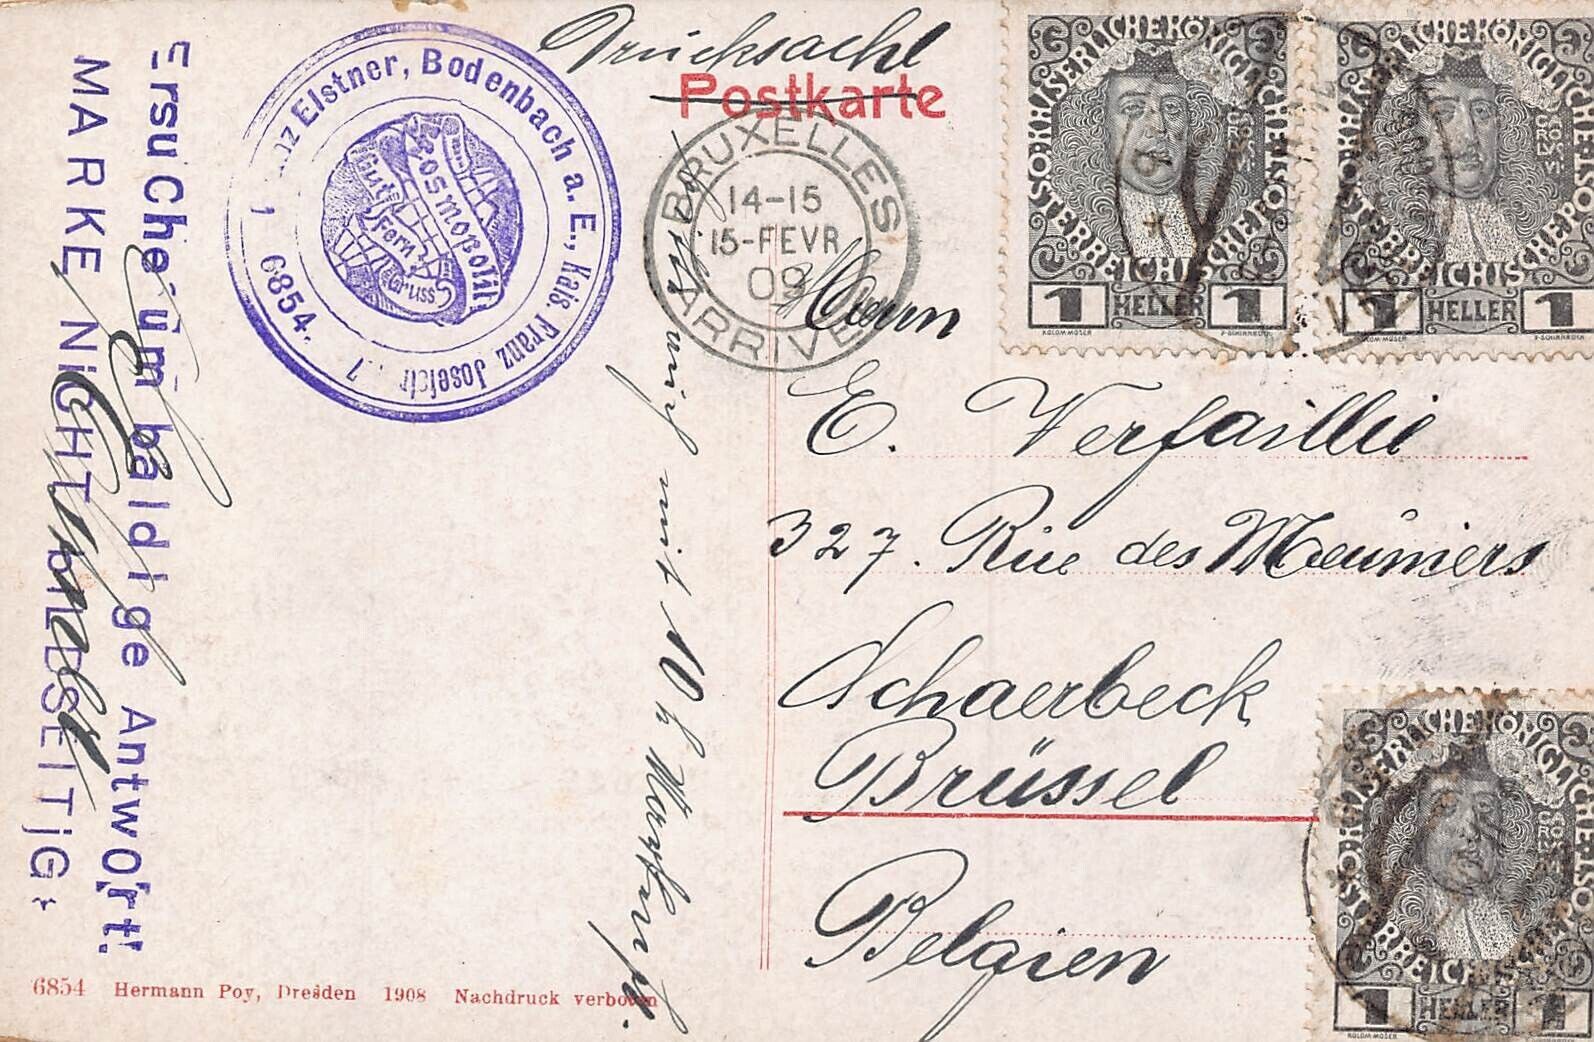 Drucksache
Postkarte
BRUXELLES
14-15
15-FEVR
09
ARRIVEE
Herrn
E. Verfaillie
327. Rue des Meuniers
Schaerbeck
Brüssel
Belgien
Elstner, Bodenbach a. E., Kais. Franz Josefstr
6854.
Kosmopolit
Gut
Fern
Gruss
Ersuche um baldige Antwort!
MARKE NICHT BILDSEITIG!
mit 10 h
KAISERLICHE KÖNIGLICHE ÖSTERREICHISCHE POST
CAROLUS VI
1 HELLER 1
KOLOM. MOSER
F. SCHIRNBÖCK
KAISERLICHE KÖNIGLICHE ÖSTERREICHISCHE POST
1 HELLER 1
F. SCHIRNBÖCK
KAISERLICHE KÖNIGLICHE ÖSTERREICHISCHE POST
1 HELLER 1
KOLOM. MOSER
6854 Hermann Poy, Dresden 1908 Nachdruck verboten